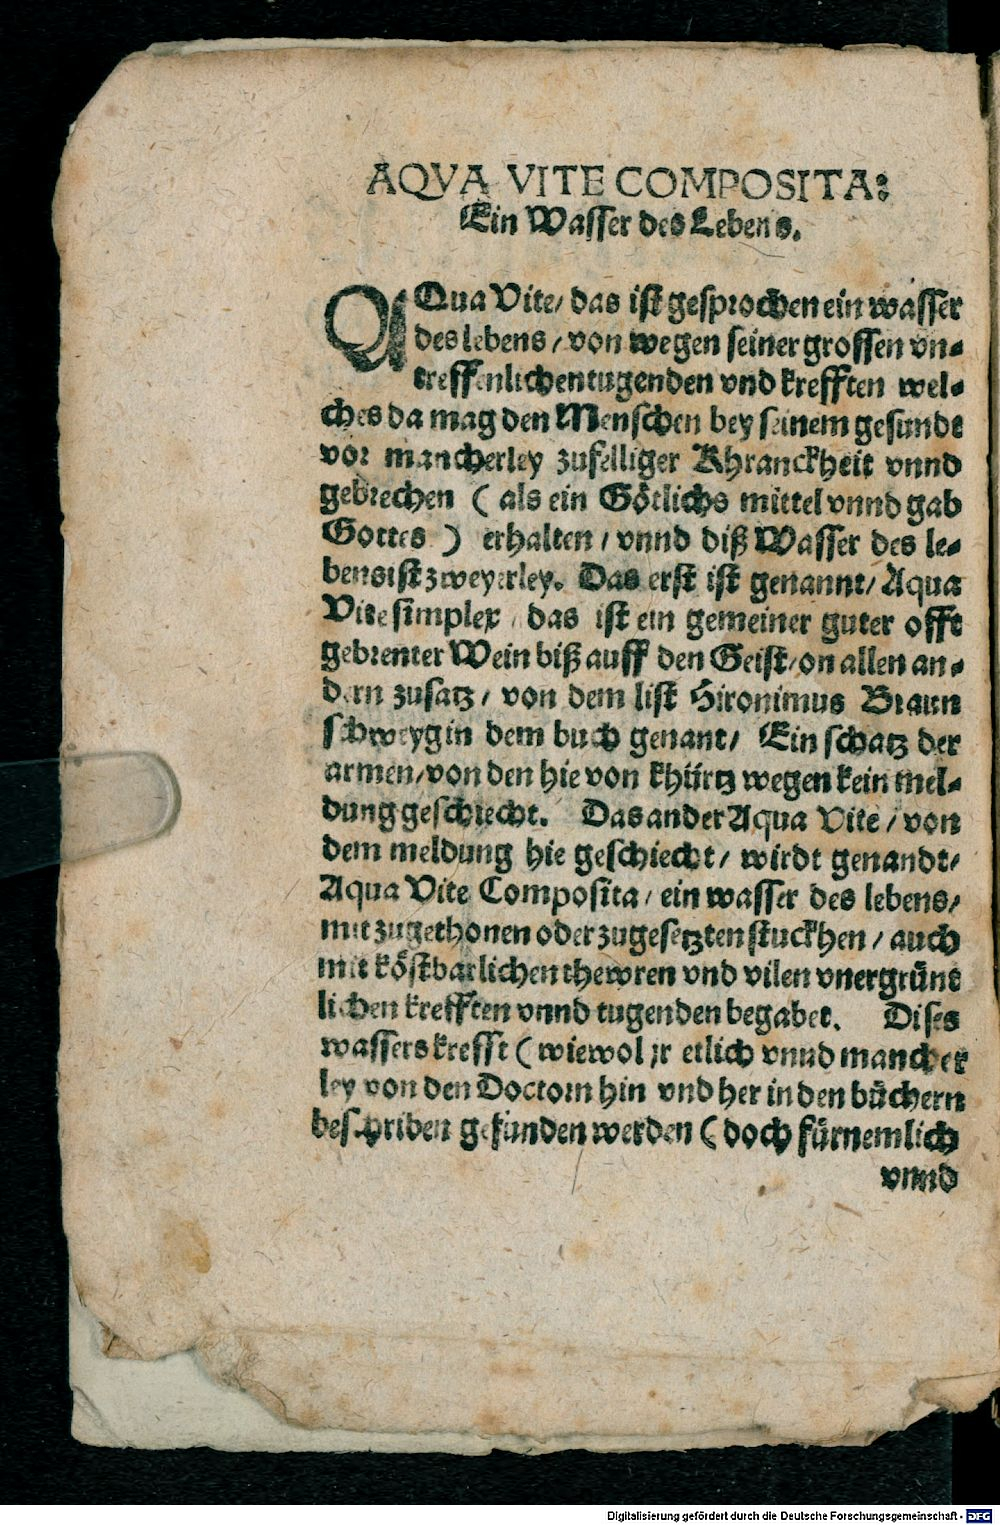 AQVA VITE COMPOSITA:
Ein Wasser des Lebens.
AQua Vite/ das ist gesprochen ein wasser
des lebens/ von wegen seiner grossen vn-
treffenlichen tugenden vnd krefften wel-
ches da mag den Menschen bey seinem gesundt
vor mancherley zufelliger Khranckheit vnnd
gebrechen ( als ein Götlichs mittel vnnd gab
Gottes ) erhalten/ vnnd diß Wasser des le-
bens ist zweyerley. Das erst ist genannt/ Aqua
Vite simplex/ das ist ein gemeiner guter offt
gebrenter Wein biß auff den Geist/ on allen an-
dern zusatz/ von dem list Hironimus Braun
schweyg in dem buch genant/ Ein schatz der
armen/ von den hie von khürtz wegen kein mel-
dung geschiecht. Das ander Aqua Vite/ von
dem meldung hie geschiecht/ wirdt genandt/
Aqua Vite Composita/ ein wasser des lebens/
mit zugethonen oder zugesetzten stuckhen/ auch
mit köstbarlichen thewren vnd vilen vnergrünt
lichen krefften vnnd tugenden begabet. Dises
wassers krefft ( wiewol jr etlich vnnd mancher
ley von den Doctorn hin vnd her in den büchern
beschriben gefunden werden ( doch fürnemlich
vnnd
Digitalisierung gefördert durch die Deutsche Forschungsgemeinschaft - DFG